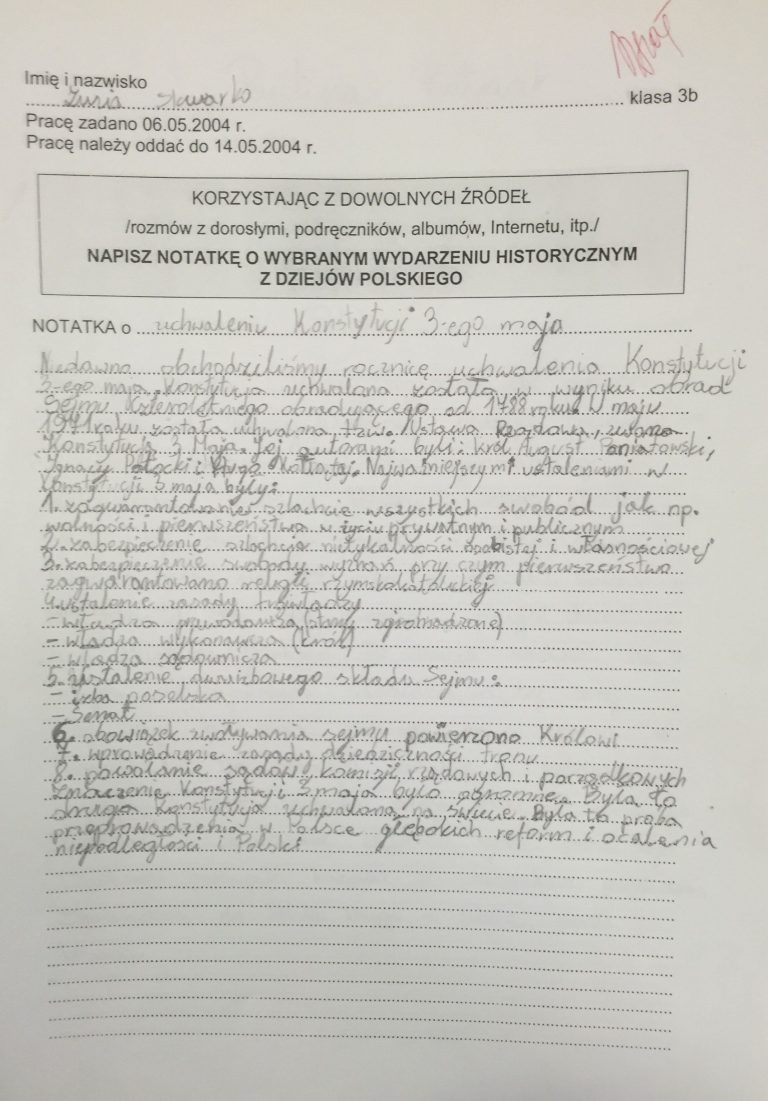 Imię i nazwisko
Zuzia Skwarko klasa 3b
Pracę zadano 06.05.2004 r.
Pracę należy oddać do 14.05.2004 r.
KORZYSTAJĄC Z DOWOLNYCH ŹRÓDEŁ
/rozmów z dorosłymi, podręczników, albumów, Internetu, itp./
NAPISZ NOTATKĘ O WYBRANYM WYDARZENIU HISTORYCZNYM
Z DZIEJÓW POLSKIEGO
NOTATKA o uchwaleniu Konstytucji 3-ego maja
Niedawno obchodziliśmy rocznicę uchwalenia Konstytucji
3-ego maja. Konstytucja uchwalona została w wyniku obrad
Sejmu Czteroletniego obradującego od 1788 roku. W maju
1791 roku została uchwalona tzw. Ustawa Rządowa, zwana
Konstytucją 3 Maja. Jej autorami byli: król August Poniatowski,
Ignacy Potocki i Hugo Kołłątaj. Najważniejszymi ustaleniami w
Konstytucji 3 maja były:
1. zagwarantowanie szlachcie wszystkich swobód jak np.
wolności i pierwszeństwa w życiu prywatnym i publicznym
2. zabezpieczenie szlachcie nietykalności osobistej i własnościowej
3. zabezpieczenie swobody wyznań przy czym pierwszeństwo
zagwarantowano religii rzymskokatolickiej
4. ustalenie zasady trójwładzy
- władza prawodawcza (stany zgromadzone)
- władza wykonawcza (król)
- władza sądownicza
5. ustalenie dwuizbowego składu Sejmu:
- izba poselska
- Senat
6. obowiązek zwoływania sejmu powierzono Królowi
7. wprowadzenie zasady dziedziczności tronu
8. powołanie sądów, komisji rządowych i porządkowych
Znaczenie Konstytucji 3 maja było ogromne. Była to
druga Konstytucja uchwalona na świecie. Była to próba
przeprowadzenia w Polsce głębokich reform i ocalenia
niepodległości i Polski